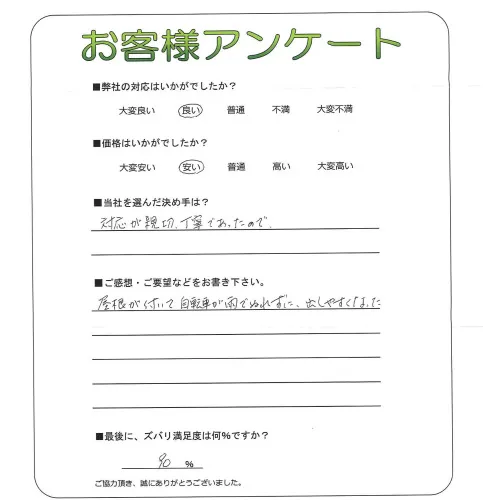 お客様アンケート
■弊社の対応はいかがでしたか？
大変良い 良い 普通 不満 大変不満
■価格はいかがでしたか？
大変安い 安い 普通 高い 大変高い
■当社を選んだ決め手は？
対応が親切、丁寧であったので、
■ご感想・ご要望などをお書き下さい。
屋根が付いて自転車が雨でぬれずに、出しやすくなった
■最後に、ズバリ満足度は何%ですか？
90 %
ご協力頂き、誠にありがとうございました。